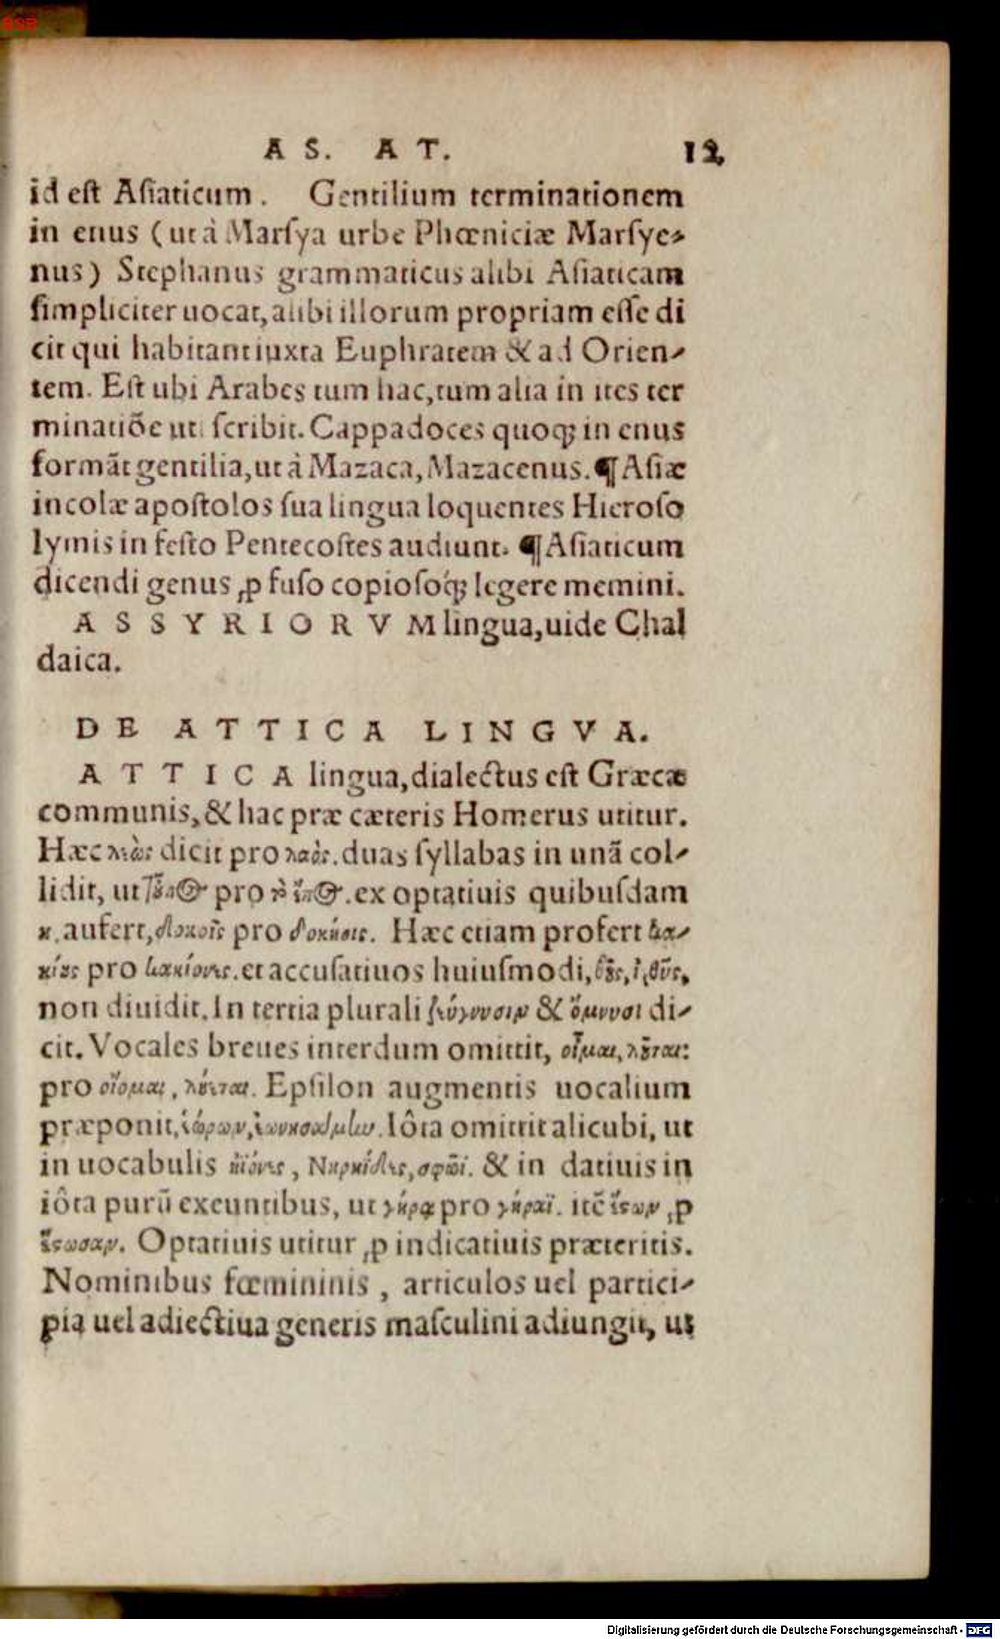 AS. AT. 12
id est Asiaticum. Gentilium terminationem
in enus (ut à Marsya urbe Phœniciæ Marsye-
nus) Stephanus grammaticus alibi Asiaticam
simpliciter uocat, alibi illorum propriam esse di
cit qui habitant iuxta Euphratem & ad Orien-
tem. Est ubi Arabes tum hac, tum alia in ites ter
minatiõe uti scribit. Cappadoces quoq; in enus
formãt gentilia, ut à Mazaca, Mazacenus. ¶ Asiæ
incolæ apostolos sua lingua loquentes Hieroso
lymis in festo Pentecostes audiunt. ¶ Asiaticum
dicendi genus ꝓ fuso copiosoq́; legere memini.
ASSYRIORVM lingua, uide Chal
daica.
DE ATTICA LINGVA.
ATTICA lingua, dialectus est Græcæ
communis, & hac præ cæteris Homerus utitur.
Hæc λεὼς dicit pro λαὸς. duas syllabas in unã col-
lidit, ut pro . ex optatiuis quibusdam
η. aufert, δοκοῖς pro δοκοίης. Hæc etiam profert
pro . et accusatiuos huiusmodi,
non diuidit. In tertia plurali ζεύγνυσιν & ὄμνυσι di-
cit. Vocales breues interdum omittit, οἶμαι, λοῦται:
pro οἴομαι, λούεται. Epsilon augmentis uocalium
præponit, ἑώρων, . Iôta omittit alicubi, ut
in uocabulis . & in datiuis in
iôta purũ exeuntibus, ut γήρᾳ pro γήραϊ. itẽ ἔστων ꝓ
ἔστωσαν. Optatiuis utitur ꝓ indicatiuis præteritis.
Nominibus fœmininis, articulos uel partici-
pia uel adiectiua generis masculini adiungit, ut
Digitalisierung gefördert durch die Deutsche Forschungsgemeinschaft - DFG